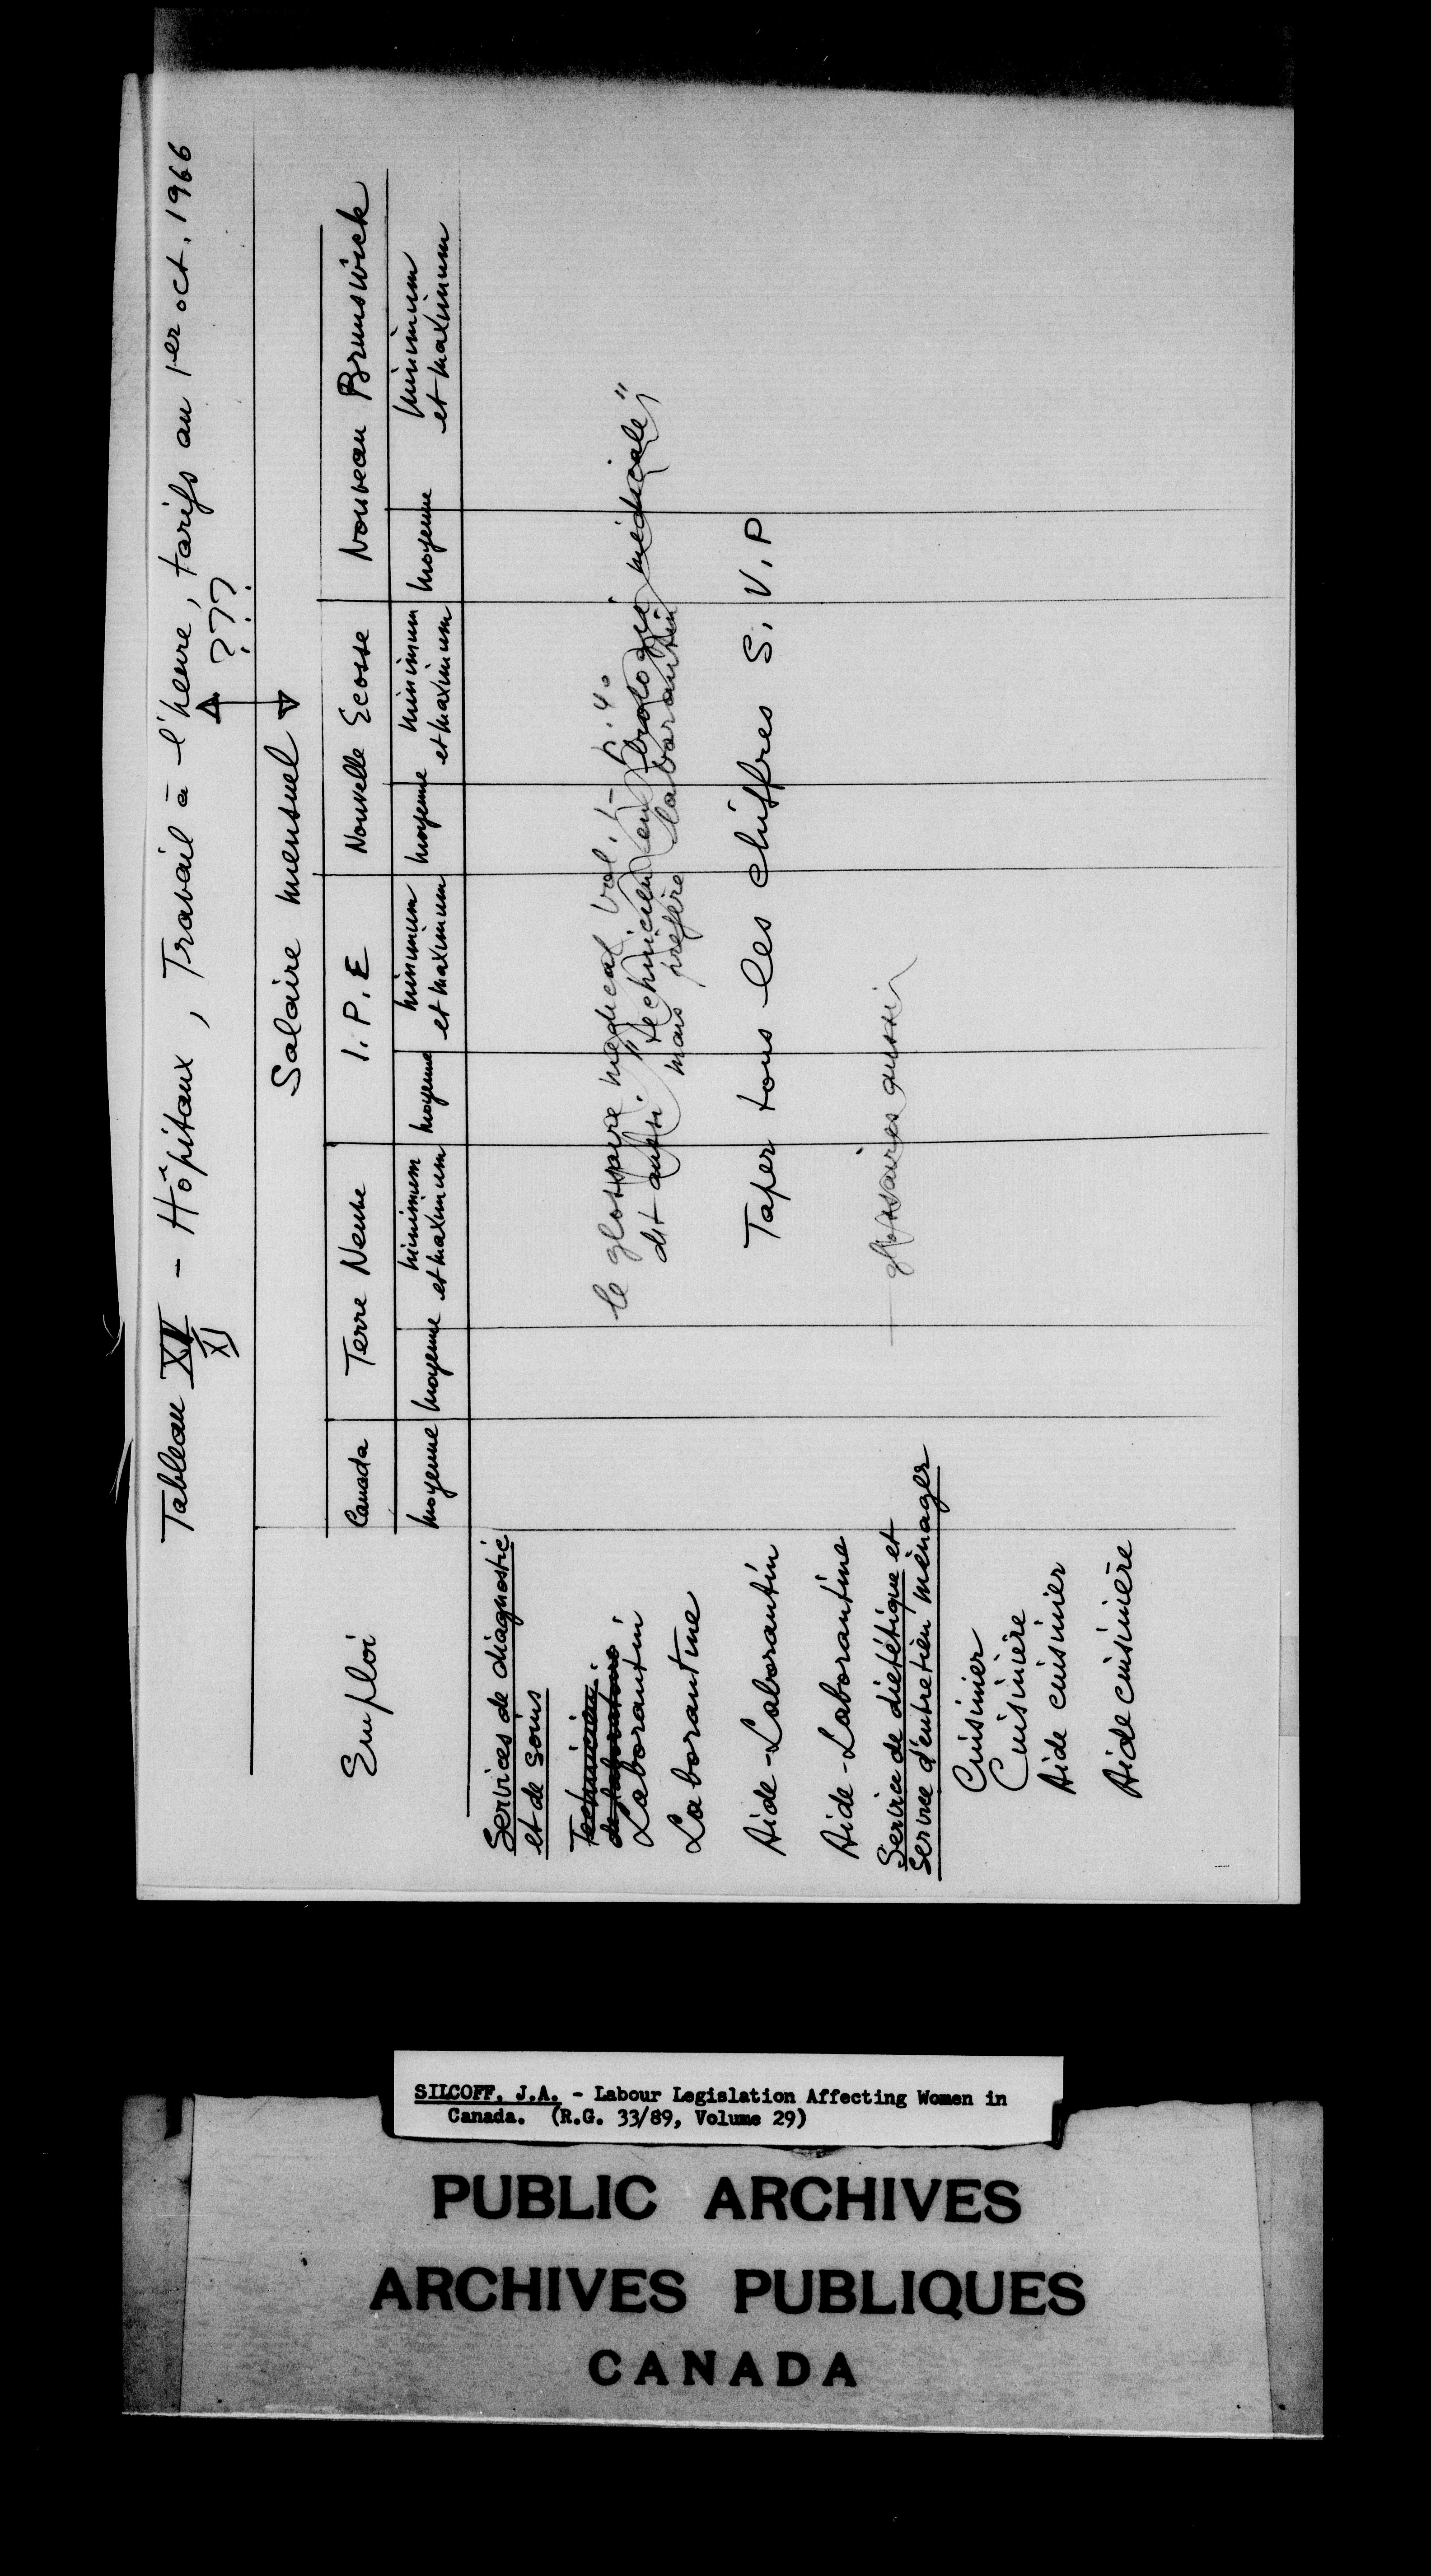 Tableau XV - Hôpitaux, Travail à l'heure, tarifs au 1er oct. 1966
XI
???
Salaire mensuel
Emploi
Canada Terre Neuve I.P.E Nouvelle Ecosse Nouveau Brunswick
moyenne moyenne minimum et maximum moyenne minimum et maximum moyenne minimum et maximum moyenne minimum et maximum
Services de diagnostic
et de soins
Technicien
de laboratoire
Laborantin
Laborantine
Aide-Laborantin
Aide-Laborantine
Service de diététique et
Service d'entretien ménager
Cuisinier
Cuisinière
Aide cuisinier
Aide cuisinière
le glossaire médical vol.
dit aussi. "technicien en biologie médicale"
mais préfère laborantin
Taper tous les chiffres S.V.P
glossaires aussi
SILCOFF, J.A. - Labour Legislation Affecting Women in
Canada. (R.G. 33/89, Volume 29)
PUBLIC ARCHIVES
ARCHIVES PUBLIQUES
CANADA